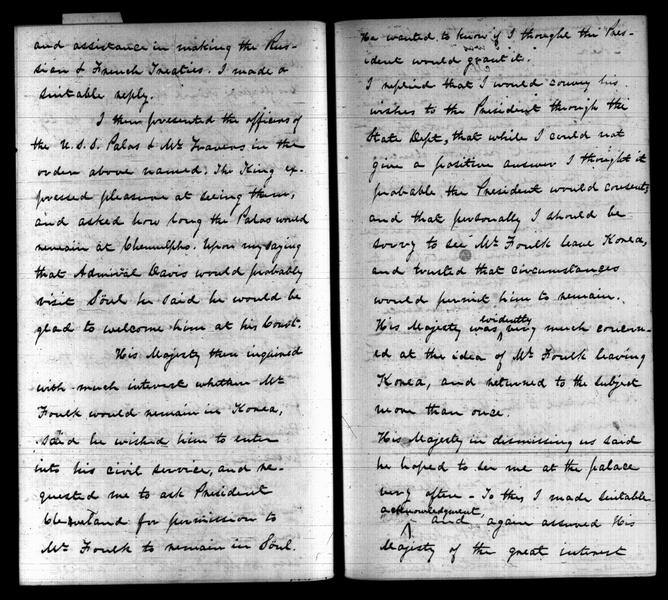 and assistance in making the Rus-
sian & French Treaties. I made a
suitable reply.
I then presented the officers of
the U.S.S Palos & Mr Travers in the
order above named. The King ex-
pressed pleasure at seeing them,
and asked how long the Palos would
remain at Chemulpho. Upon my saying
that Admiral Davis would probably
visit Soul he said he would be
glad to welcome him at his Court.
His Majesty then inquired
with much interest whether Mr
Foulk would remain in Korea,
said he wished him to enter
into his civil service, and re-
quested me to ask President
Cleveland for permission to
Mr Foulk to remain in Soul.
He wanted to know if I thought the Pres-
ident would grant it.
I replied that I would convey his
wishes to the President through the
State Dept, that while I could not
give a positive answer I thought it
probable the President would consent;
and that personally I should be
sorry to see Mr Foulk leave Korea,
and trusted that circumstances
would permit him to remain.
evidently
His Majesty was, very much concern-
ed at the idea of Mr Foulk leaving
Korea, and returned to the subject
more than once.
His Majesty in dismissing us said
he hoped to see me at the palace
very often - To this, I made suitable
acknowledgment
and again assured His
Majesty of the great interest